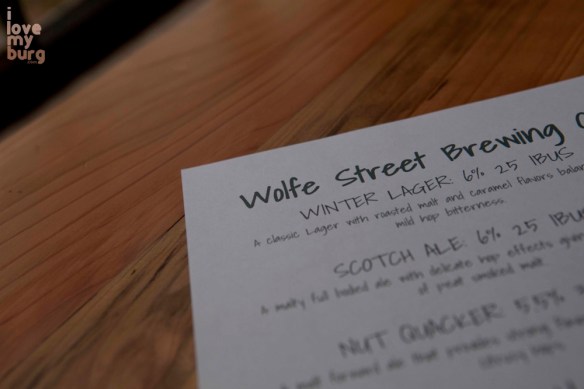 i
love
my
burg
.com
Wolfe Street Brewing C
WINTER LAGER: 6% 25 IBUS
A classic Lager with roasted malt and caramel flavors balan
mild hop bitterness.
SCOTCH ALE: 6% 25 IBUS
A malty full bodied ale with delicate hop effects
of peat smoked malt
NUT QUACKER 5.5%
A malt forward ale that provides strong